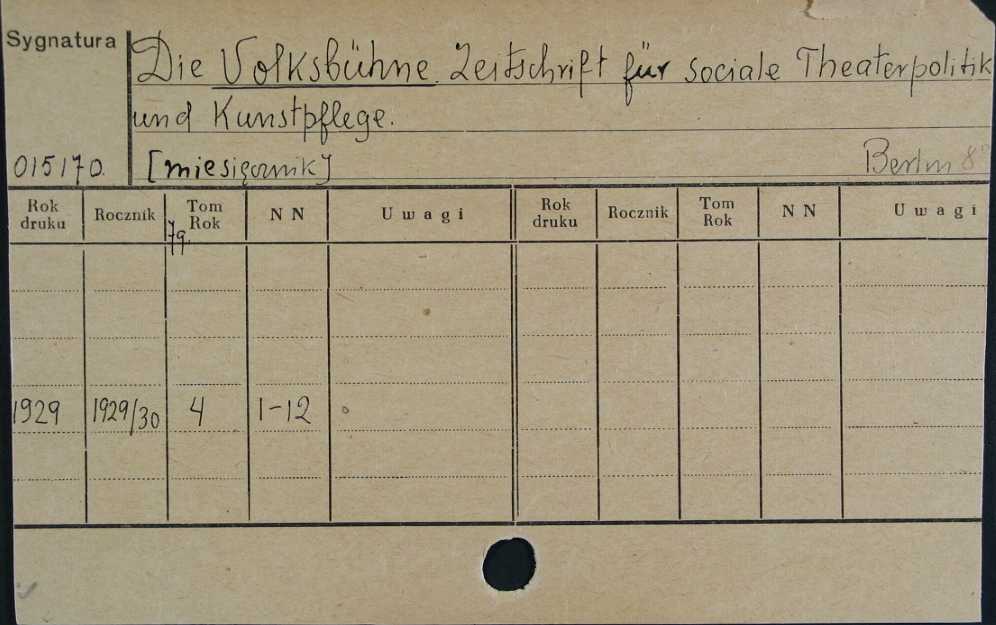 Sygnatura
Die Volksbühne. Zeitschrift für sociale Theaterpolitik
und Kunstpflege.
015170. [miesięcznik] Berlin 8°
Rok druku Rocznik Tom Rok NN Uwagi Rok druku Rocznik Tom Rok NN Uwagi
Jg.
1929 1929/30 4 1-12